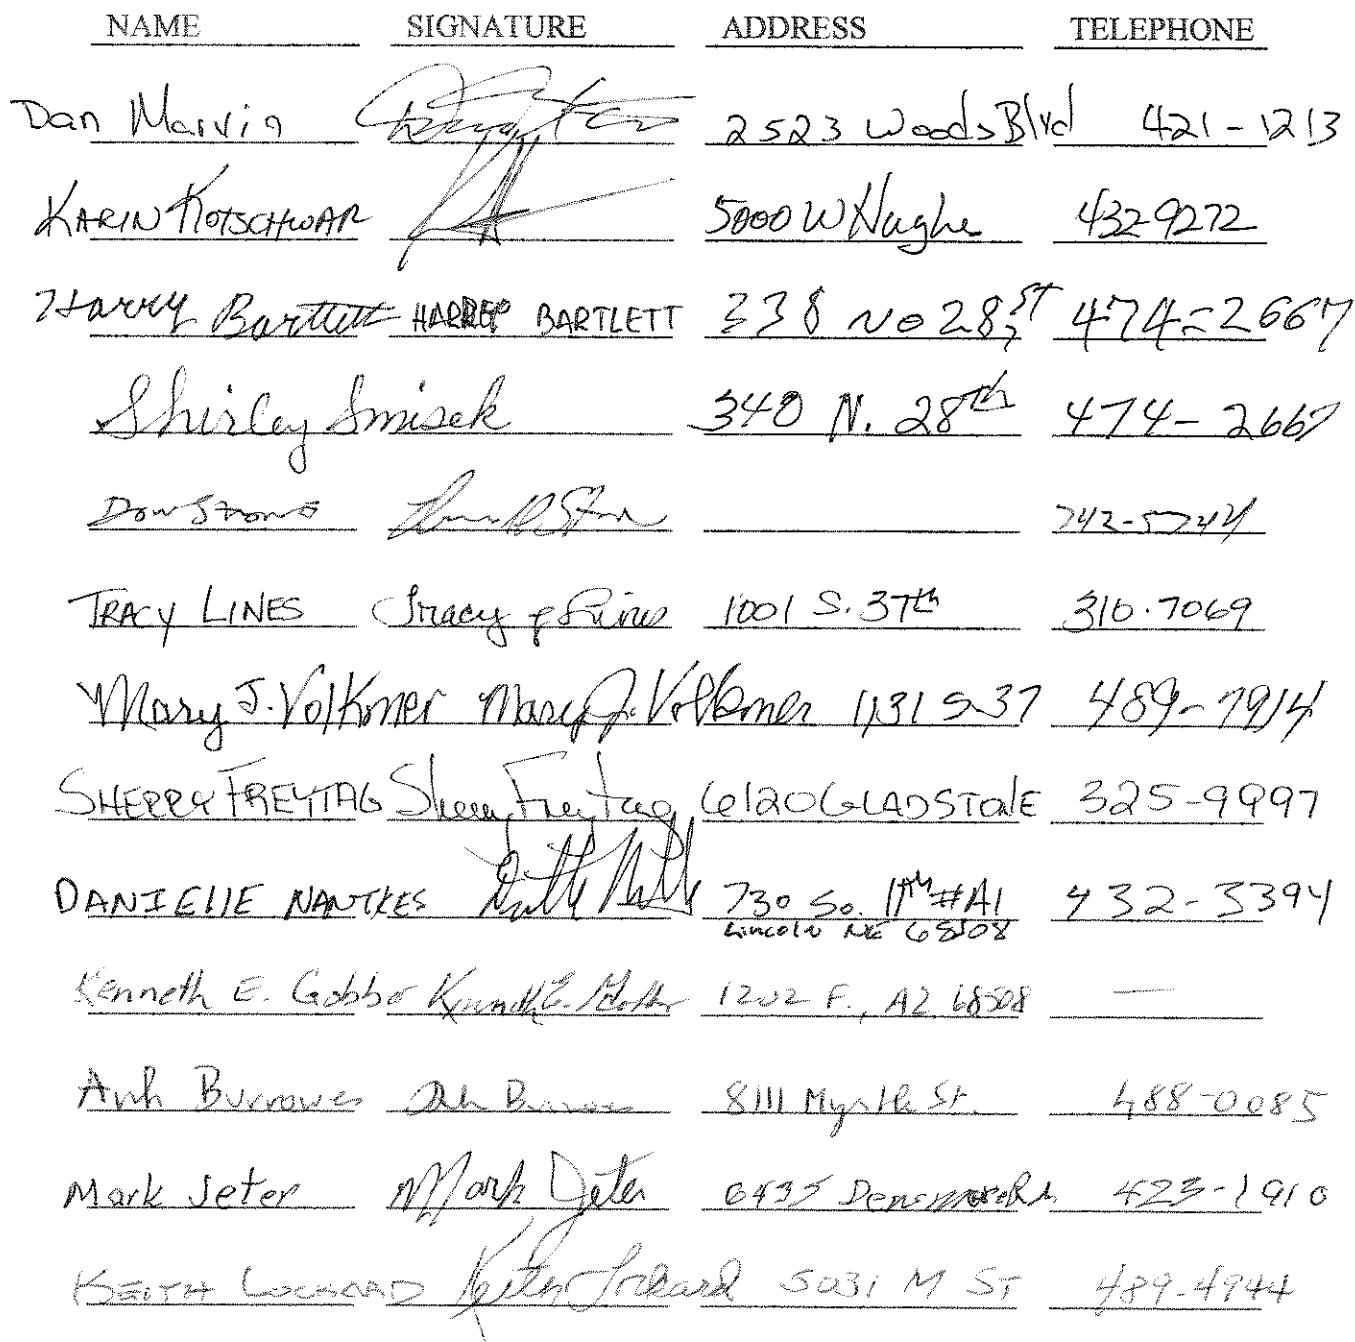 NAME SIGNATURE ADDRESS TELEPHONE
Dan Marvin 2523 Woods Blvd 421-1213
KARIN KOTSCHWAR 5000 W Hughe 432-9272
Harry Bartlett BARTLETT 338 No 28 St 474-2667
Shirley Smisek 340 N. 28th 474-2667
Don Strong
TRACY LINES Tracy Lines 1001 S. 37th 310.7069
Mary J. Volkmer Mary J. Volkmer 1131 S 37 489-7914
SHERRY FREYTAG Sherry Freytag 6120 GLADSTONE 325-9997
DANIELLE NANTKES 730 So. 11th #A1 432-3394
Lincoln NE 68508
Kenneth E. Kenneth E. 1202 F., A2 68508 —
Burrowes 8111 Myrtle St. 488-0085
Mark Jeter Mark Jeter 6435 423-1910
KEITH LOCKARD Keith Lockard 5031 M ST 489-4944